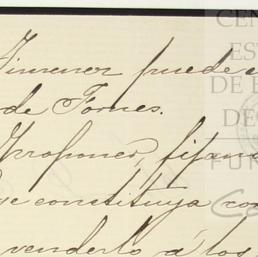 Jimenez puede
de Fornes.
proponer, fijan
se constituya con
venderlo á los
CEN
ES
DE E
DE
FUN